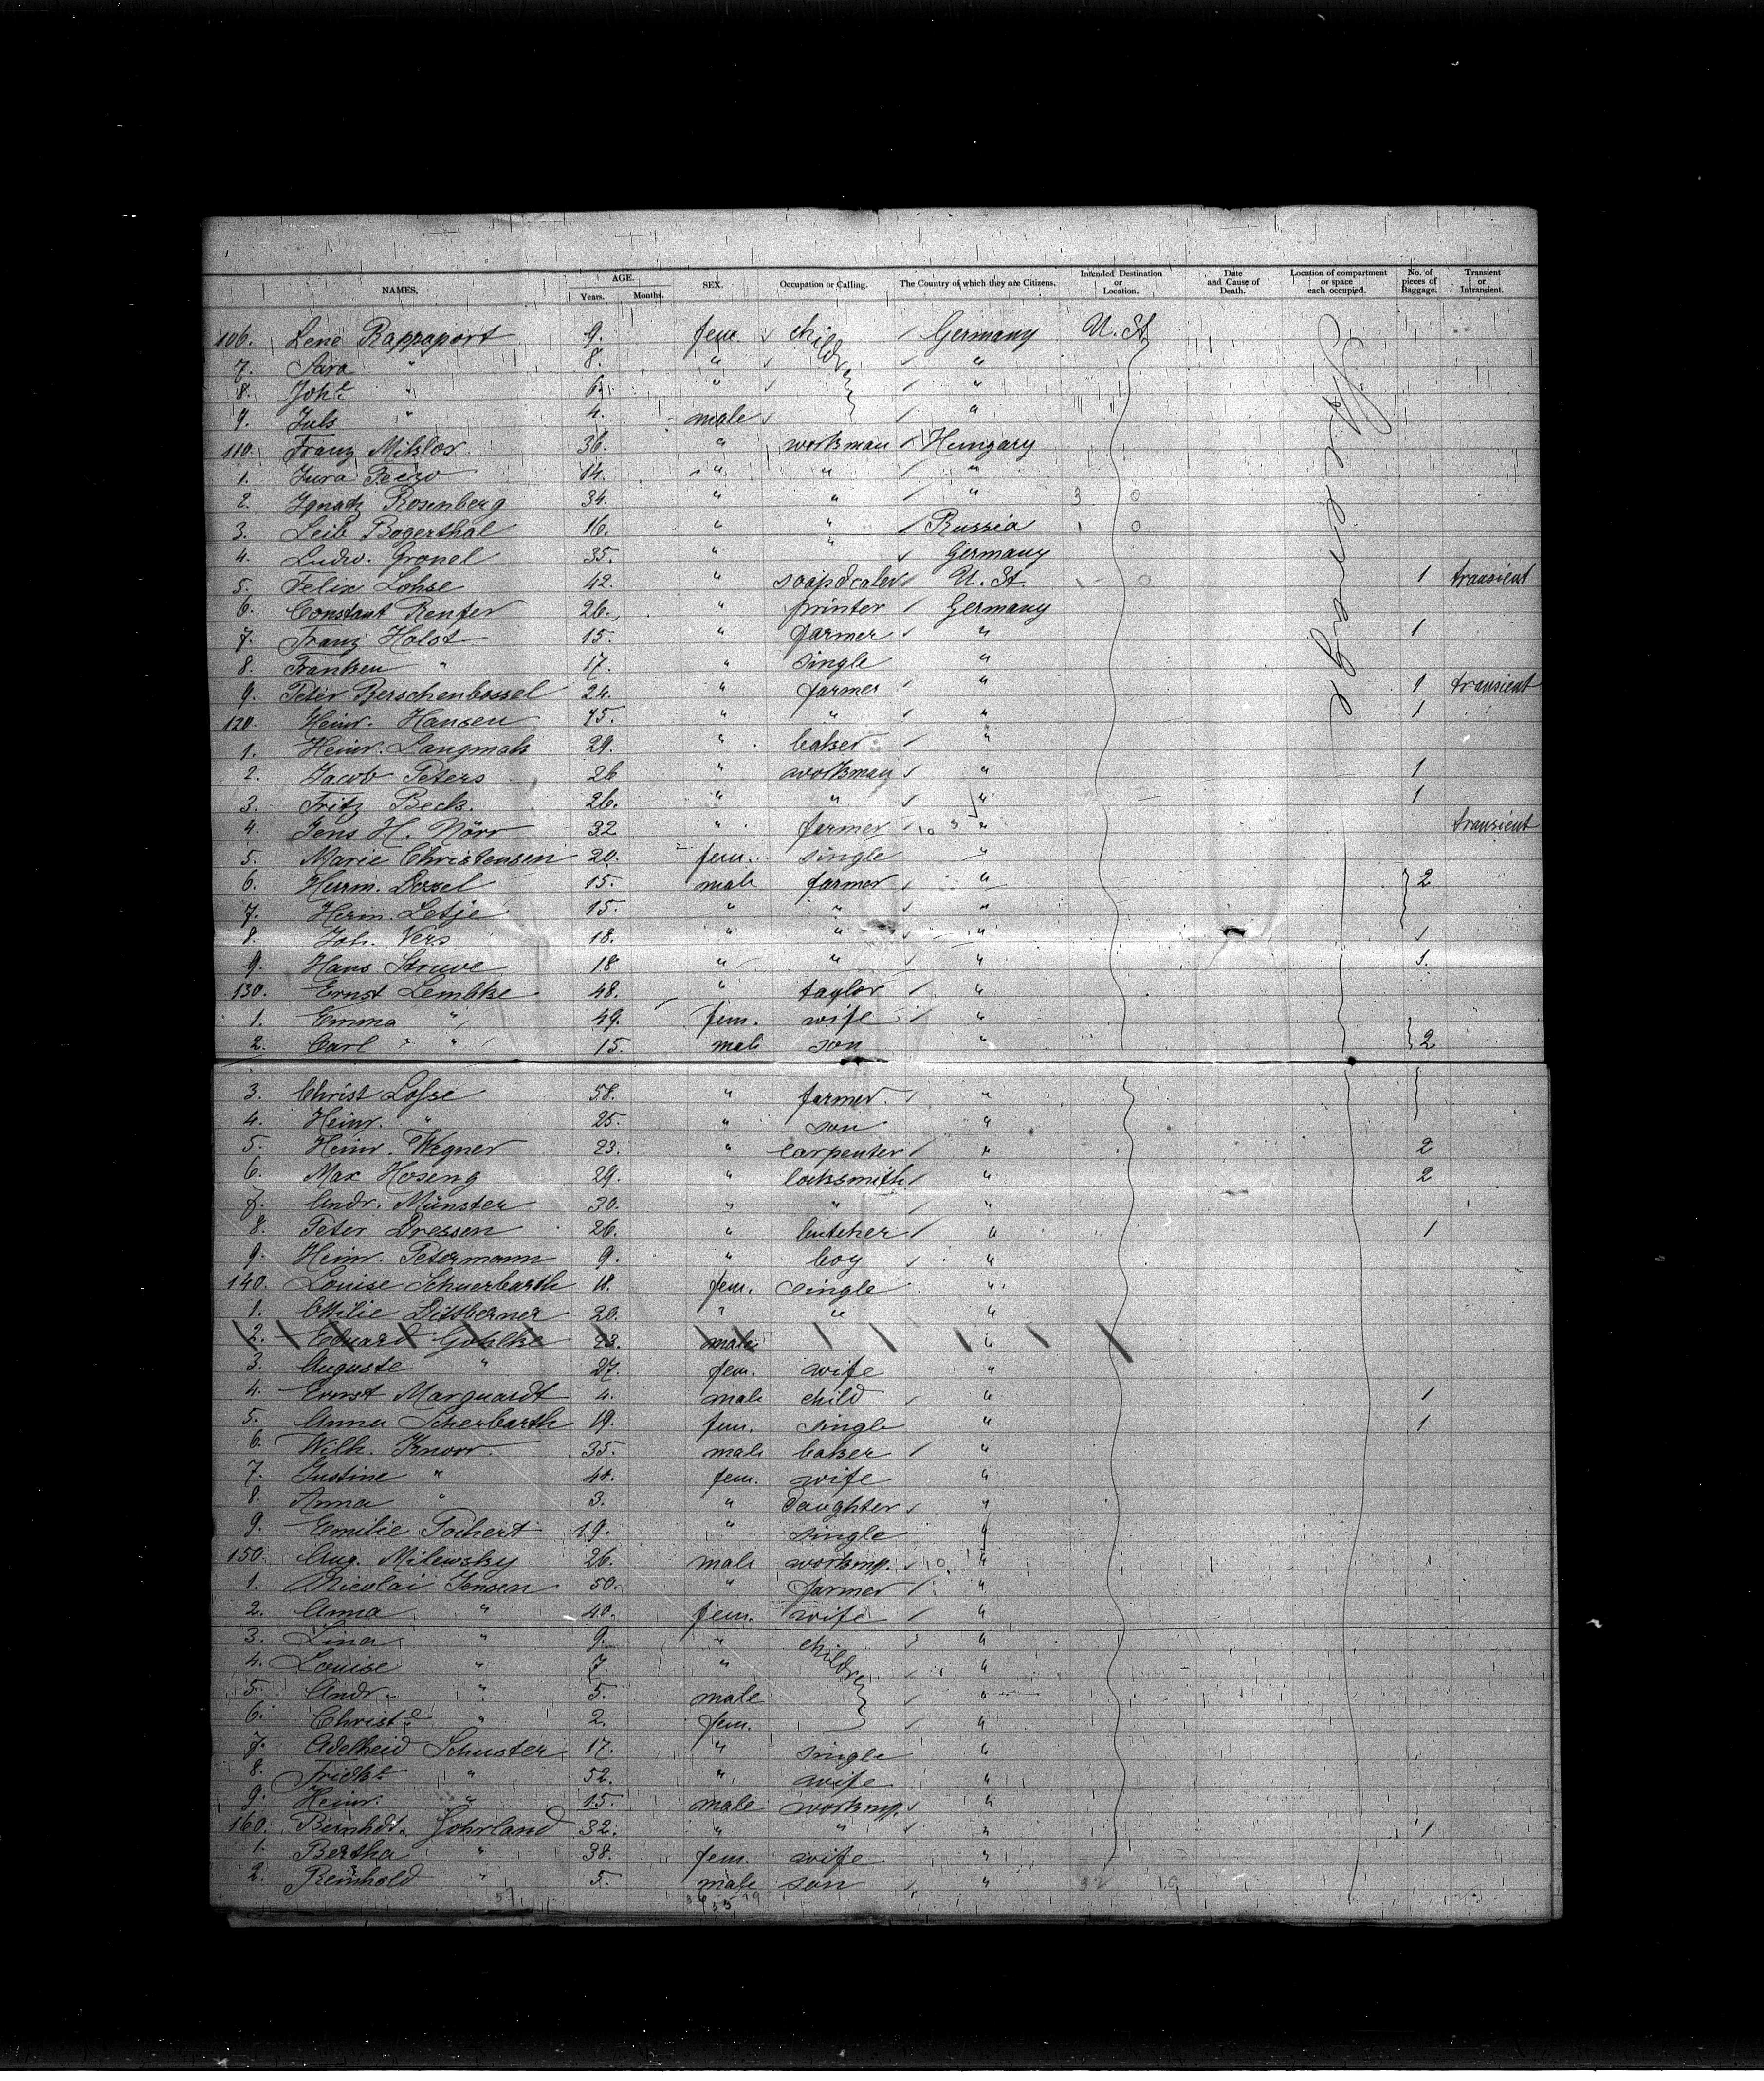 NAMES. AGE. Years. Months. SEX. Occupation or Calling. The Country of which they are Citizens. Intended Destination or Location. Date and Cause of Death. Location of compartment or space each occupied. No. of pieces of Baggage. Transient or Intransient.
106. Lene Rappaport 9. fem. children Germany U. St. Steerage
7. Sara " 8. " "
8. Joh.e " 6. " "
9. Juls " 4. male "
110. Franz Miklos 36. " workman Hungary
1. Jura 14. " " "
2. Ignatz Rosenberg 34. " " " 3 0
3. Leib Bogerthal 16. " " Russia 1 0
4. Ludw. Gronel 35. " " Germany
5. Felix Lohse 42. " soapdealer U. St. 1 0 1 transient
6. Constant Renfer 26. " printer Germany
7. Franz Holst 15. " farmer " 1
8. Franken " 17. " single "
9. Peter Berschenbossel 24. " farmer " 1 transient
120. Heinr. Hansen 45. " " " 1 "
1. Heinr. Langmak 29. " baker "
2. Jacob Peters 26 " workman " 1
3. Fritz Beck. 26. " " " 1
4. Jens H. Nörr 32 " farmer 10 3 " transient
5. Marie Christensen 20. fem. single "
6. Herm. Dossel 15. male farmer " 2
7. Herm. Letje 15. " " "
8. Joh. Vers 18. " " "
9. Hans Struve 18 " " " 1.
130. Ernst Lembke 48. " taylor "
1. Emma " 49. fem. wife "
2. Carl " 15. male son " 2
3. Christ Lofse 58. " farmer. "
4. Heinr. " 25. " son "
5. Heinr. Wegner 23. " carpenter " 2
6. Max Hoseng 29. " locksmith " 2
7. Andr. Münster 30. " " "
8. Peter Dressen 26. " butcher " 1
9. Heinr. Petermann 9. " boy "
140. Louise Schuerbarth 18. fem. single "
1. Ottilie Dittberner 20. " " "
2. Eduard Gohlke 23. male "
3. Auguste " 27. fem. wife "
4. Ernst Marquardt 4. male child " 1
5. Anna Scherbarth 19. fem. single " 1
6. Wilh. Knorr 35. male baker "
7. Justine " 41. fem. wife "
8. Anna " 3. " daughter "
9. Emilie Pochert 19. " single "
150. Aug. Milewsky 26. male workmp. 10 "
1. Nicolai Jensen 50. " farmer "
2. Anna " 40. fem. wife "
3. Lina " 9. " children "
4. Louise " 7. " "
5. Andr. " 5. male "
6. Christ.e " 2. fem. "
7. Adelheid Schuster 17. " single "
8. Fridke " 52. " wife "
9. Heinr. " 15. male workmp. "
160. Bernhdt. Gohrland 32. " " " 1
1. Bertha " 38. fem. wife "
2. Reinhold " 5. male son " 32 19